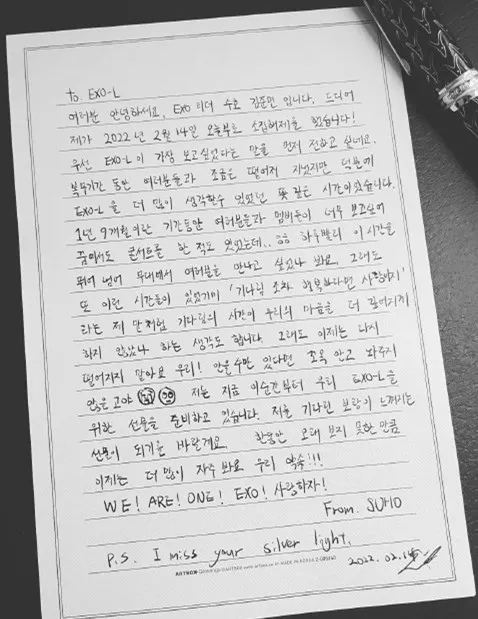 To. EXO-L
여러분 안녕하세요. EXO 리더 수호 김준면 입니다. 드디어
제가 2022년 2월 14일 오늘부로 소집해제를 했습니다!
우선 EXO-L이 가장 보고싶었다는 말을 먼저 전하고 싶네요.
복무기간 동안 여러분들과 조금은 떨어져 지냈지만 덕분에
EXO-L을 더 많이 생각할수 있었던 뜻 깊은 시간이었습니다.
1년 9개월이란 기간동안 여러분들과 멤버들이 너무 보고싶어
꿈에서도 콘서트를 한 적도 있었는데.. 하루빨리 이 시간을
뛰어 넘어 무대에서 여러분을 만나고 싶었나 봐요. 그래도
또 이런 시간들이 있었기에 '기다림 조차 행복하다면 사랑이다'
라는 제 말처럼 기다림의 시간이 우리의 마음을 더 깊어지게
하지 않았나 하는 생각도 합니다. 그래도 이제는 다시
떨어지지 말아요 우리! 안을수만 있다면 꼬옥 안고 놔주지
않을 고야 저는 지금 이순간부터 우리 EXO-L을
위한 선물을 준비하고 있습니다. 저를 기다린 보람이 느껴지는
선물이 되기를 바랄게요. 한동안 오래 보지 못한 만큼
이제는 더 많이 자주 봐요 우리 약속!!!
WE! ARE! ONE! EXO! 사랑하자!
From. SUHO
P.S. I miss your silver light.
2022. 02. 14
ARTNOW